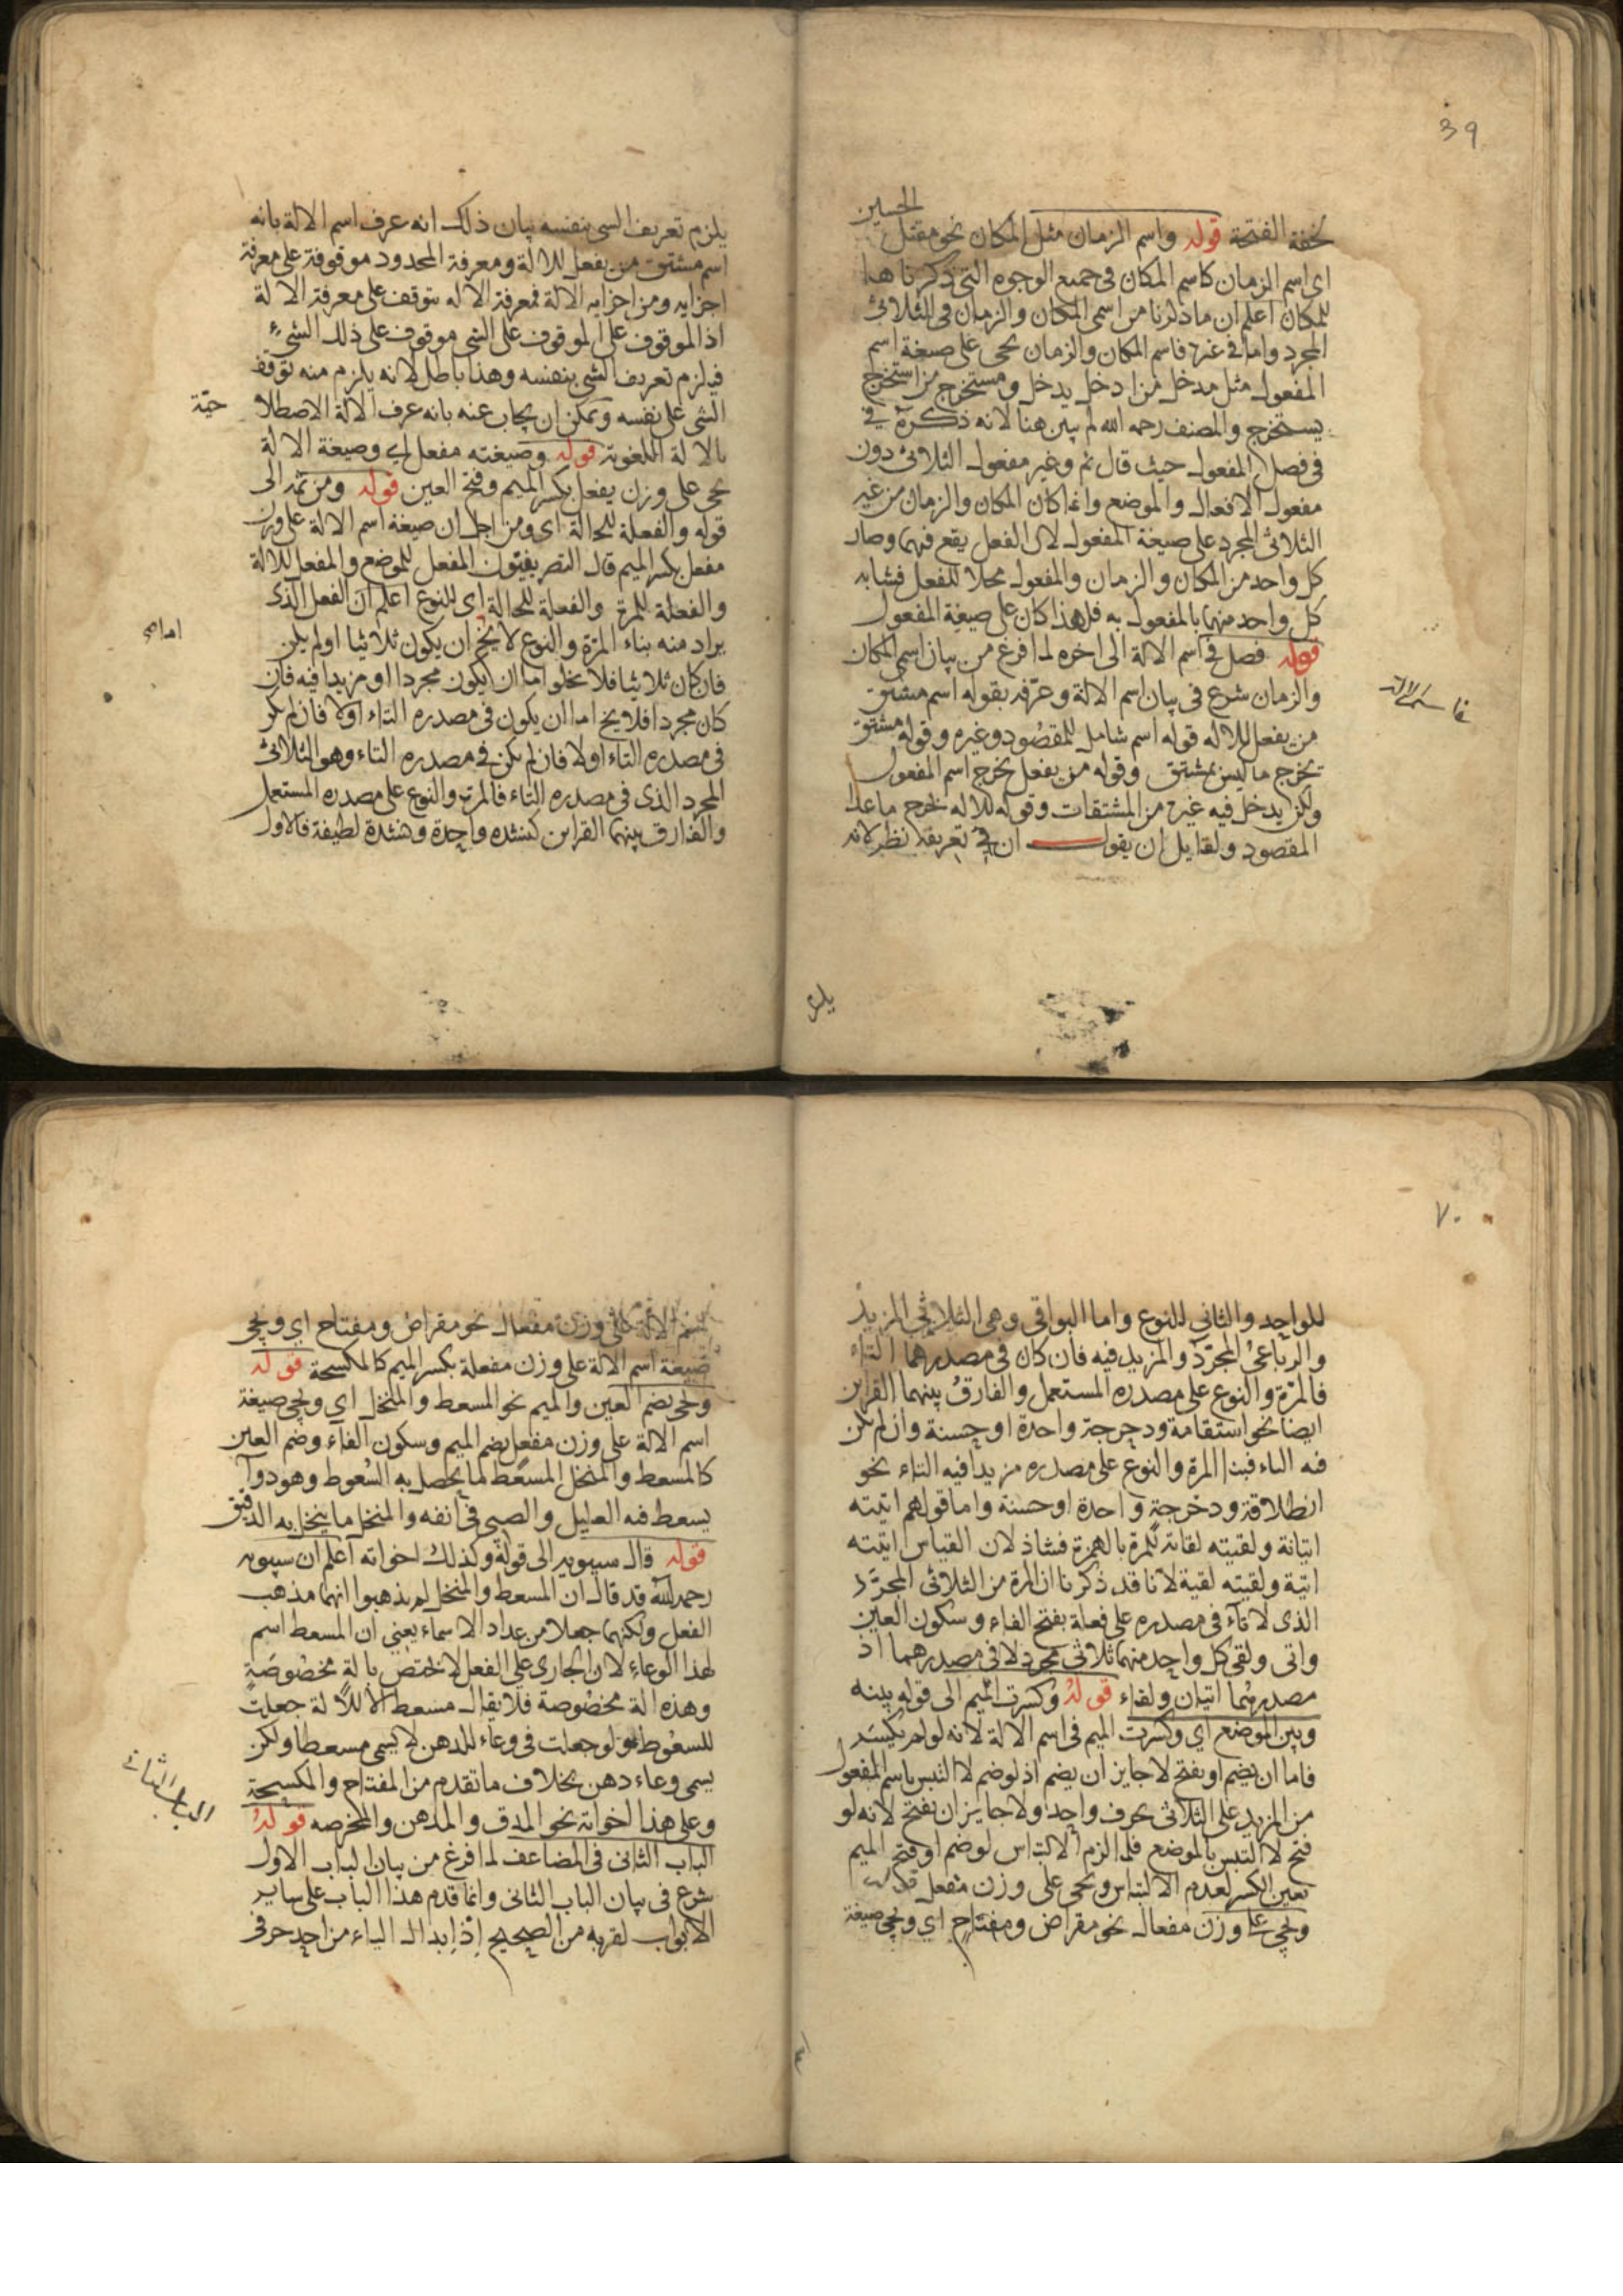 39
الحسين
لخفة الفتحة قوله واسم الزمان مثل المكان نحو مقتل
اى اسم الزمان كاسم المكان فى جميع الوجوه التى ذكرناها
للمكان اعلم ان ما ذكرنا من اسمى المكان والزمان فى الثلاثى
المجرد واما فى غيره فاسم المكان والزمان يجى على صيغة اسم
المفعول مثل مدخل من ادخل يدخل ومستخرج من استخرج
يستخرج والمصنف رحمه الله لم يبين هنا لانه ذكره فى
فى فصل المفعول حيث قال ثم وغير مفعول الثلاثى دون
مفعول الافعال والموضع وانما كان المكان والزمان من غير
الثلاثى المجرد على صيغة المفعول لان الفعل يقع فيهما وصار
كل واحد من المكان والزمان والمفعول محلا للفعل فشابه
كل واحد منهما بالمفعول به فلهذا كان على صيغة المفعول
قوله فصل فى اسم الالة الى اخره لما فرغ من بيان اسم المكان
والزمان شرع فى بيان اسم الالة وعرفه بقوله اسم مشتق
من يفعل للاله قوله اسم شامل للمقصود وغيره وقوله مشتق
يخرج ما ليس بمشتق وقوله من يفعل يخرج اسم المفعول
ولكن يدخل فيه غيره من المشتقات وقوله للاله يخرج ما عدا
المقصود ولقايل ان يقول ان فى تعريفه نظر لانه
يلزم
يلزم تعريف الشى بنفسه بيان ذلك انه عرف اسم الالة بانه
اسم مشتق من يفعل للالة ومعرفة المحدود موقوفة على معرفة
اجزايه ومن اجزايه الالة فمعرفة الاله يتوقف على معرفة الالة
اذ الموقوف على الموقوف على الشى موقوف على ذلك الشىء
فيلزم تعريف الشى بنفسه وهذا باطل لانه يلزم منه توقف
الشى على نفسه ويمكن ان يجاب عنه بانه عرف الالة الاصطلا
حيّة
بالالة اللغوية قوله وصيغته مفعل اي وصيغة الالة
يجى على وزن يفعل بكسر الميم وفتح العين قوله ومن ثمه الى
قوله والفعلة للحالة اى ومن اجل ان صيغة اسم الالة على وزن
مفعل بكسر الميم قال التصريفيون المفعل للموضع والمفعل للالة
والفعلة للمرة والفعلة للحالة اى للنوع اعلم ان الفعل الذى
يراد منه بناء المرة والنوع لا يخ ان يكون ثلاثيا اولم يكن
فان كان ثلاثيا فلا يخلو اما ان يكون مجردا او مزيدا فيه فان
كان مجردا فلا يخ اما ان يكون فى مصدره التاء اولا فان لم يكن
فى مصدره التاء اولا فان لم يكن فى مصدره التاء وهو الثلاثى
المجرد الذى فى مصدره التاء فالمرة والنوع على مصدره المستعمل
والفارق بينهما القراين كنشدة واحدة ونشدة لطيفة فالاول
٧٠
للواحد والثانى للنوع واما البواقى وهى الثلاثى المزيد
والرباعى المجرد والمزيد فيه فان كان فى مصدرهما التاء
فالمرة والنوع على مصدره المستعمل والفارق بينهما القراين
ايضا نحو استقامة ودحرجة واحدة او حسنة وان لم يكن
فيه التاء فبنا المرة والنوع على مصدره مزيدا فيه التاء نحو
انطلاقة ودحرجة واحدة او حسنة واما قولهم اتيته
اتيانة ولقيته لقاءة للمرة بالهمزة فشاذ لان القياس اتيته
اتية ولقيته لقية لانا قد ذكرنا ان المرة من الثلاثى المجرد
الذى لا تاء فى مصدره على فعلة بفتح الفاء وسكون العين
واتى ولقى كل واحد منهما ثلاثى مجرد لا فى مصدرهما اذ
مصدرهما اتيان ولقاء قوله وكسرت الميم الى قوله بينه
وبين الموضع اي وكسرت الميم فى اسم الالة لانه لو لم يكسر
فاما ان يضم او يفتح لا جايز ان يضم اذ لو ضم لالتبس باسم المفعول
من المزيد على الثلاثى بحرف واحد ولا جايز ان تفتح لانه لو
فتح لالتبس بالموضع فلما الزم الالتباس لو ضم او فتح الميم
تعين الكسر لعدم الالتباس ويجى على وزن مفعل
ويجى على وزن مفعال نحو مقراض ومفتاح اي ويجى صيغة
اسم الالة على وزن مفعال نحو مقراض ومفتاح اي ويجى
صيغة اسم الالة على وزن مفعلة بكسر الميم كالمكسحة قوله
ويجى بضم العين والميم نحو المسعط والمنخل اي ويجى صيغة
اسم الالة على وزن مفعل بضم الميم وسكون الفاء وضم العين
كالمسعط والمنخل المسعط لما يحصل به السعوط وهو دواء
يسعط فيه العليل والصبى فى انفه والمنخل ما ينخل به الدقيق
قوله قال سيبويه الى قوله وكذلك اخواته اعلم ان سيبويه
رحمه الله قد قال ان المسعط والمنخل لم يذهبوا انهما مذهب
الفعل ولكنهما جعلا من عداد الاسماء يعني ان المسعط اسم
لهذا الوعاء لان الجاري على الفعل لا يختص بالة مخصوصة
وهذه الة مخصوصة فلا يقال مسعط الا للالة جعلت
للسعوط ولو جعلت فى وعاء للدهن لا يسمى مسعطا ولكن
يسمى وعاء دهن بخلاف ما تقدم من المفتاح والمكسحة
وعلى هذا اخواته نحو المدق والمدهن والمحرضه قوله
الباب الثانى
الباب الثانى فى المضاعف لما فرغ من بيان الباب الاول
شرع فى بيان الباب الثانى وانما قدم هذا الباب على ساير
الابواب لقربه من الصحيح اذ ابدال الياء من احد حرفى